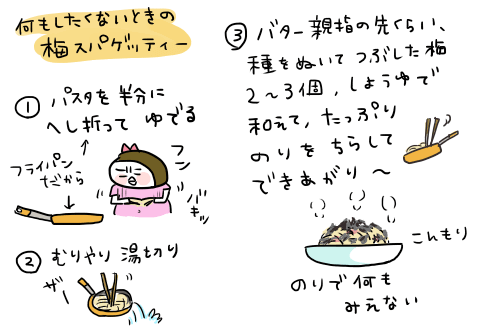 何もしたくないときの
梅スパゲッティー
① パスタを半分に
へし折って ゆでる
フライパン
だから
フン
バキッ
② むりやり 湯切り
ザー
③ バター親指の先くらい、
種をぬいて つぶした梅
2〜3個、しょうゆで
和えて、たっぷり
のりを ちらして
できあがり 〜
こんもり
のりで何も
みえない